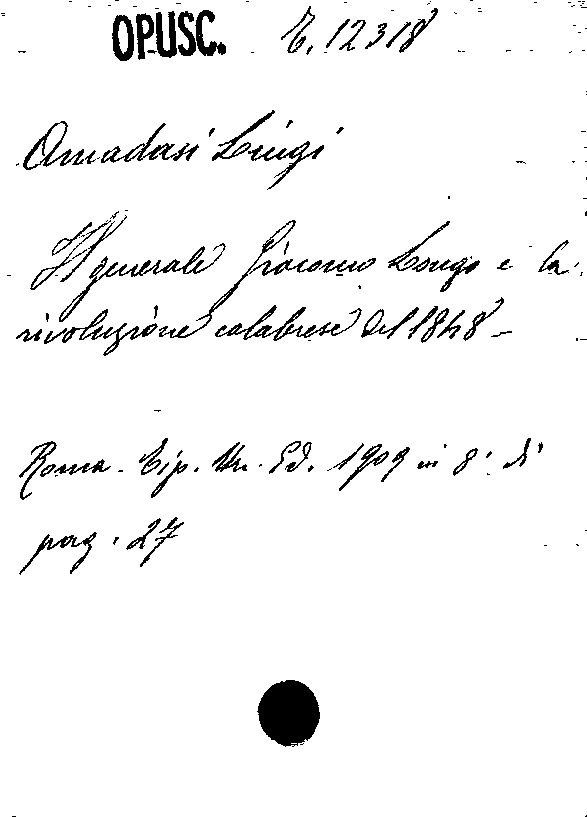 OPUSC. E. 12318
Amadasi Luigi
Il generale Giacomo Longo e la
rivoluzione calabrese del 1848 -
Roma. Tip. Un. Ed. 1909 in 8° di
pag. 27